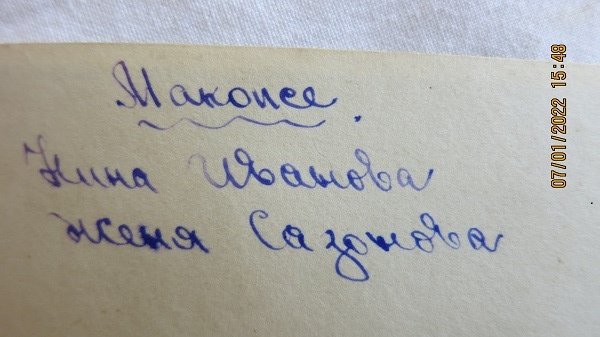 Макопсе.
Нина Иванова
Женя Сазонова
07/01/2022 15:48